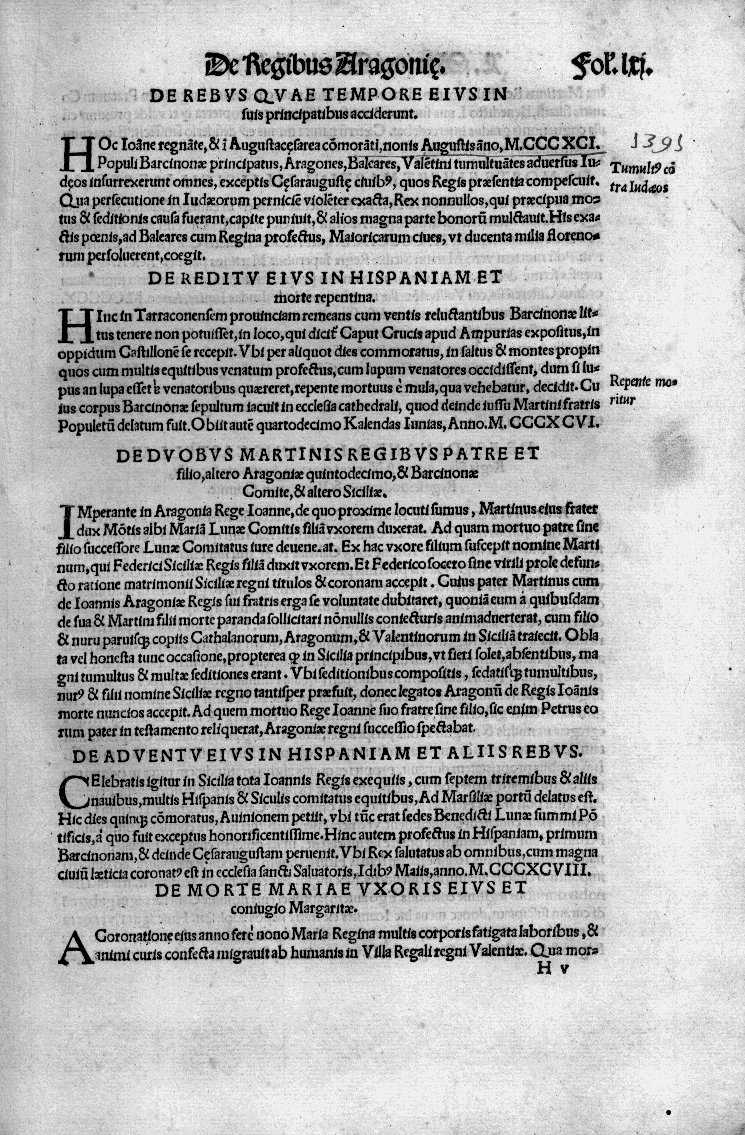 De Regibus Aragonię. Fol. lxj.
DE REBVS QVAE TEMPORE EIVS IN
suis principatibus acciderunt.
HOc Ioãne regnãte, & ĩ Augustacęsarea cõmorãti, nonis Augustis ãno, M.CCCXCI. 1391
Populi Barcinonæ principatus, Aragones, Baleares, Valẽtini tumultuãtes aduersus Iu- Tumultꝰ cõ
dęos insurrexerunt omnes, exceptis Cęsaraugustę ciuibꝰ, quos Regis præsentia compescuit. tra Iudæos
Qua persecutione in Iudæorum perniciẽ violẽter exacta, Rex nonnullos, qui præcipua mo-
tus & seditionis causa fuerant, capite puniuit, & alios magna parte bonorũ mulctauit. His exa-
ctis pœnis, ad Baleares cum Regina profectus, Maioricarum ciues, vt ducenta milia floreno-
rum persoluerent, coegit.
DE REDITV EIVS IN HISPANIAM ET
morte repentina.
HInc in Tarraconensem prouinciam remeans cum ventis reluctantibus Barcinonæ lit-
tus tenere non potuisset, in loco, qui dicit̃ Caput Crucis apud Ampurias expositus, in
oppidum Castillonẽ se recepit. Vbi per aliquot dies commoratus, in saltus & montes propin
quos cum multis equitibus venatum profectus, cum lupam venatores occidissent, dum si lu-
pus an lupa esset è venatoribus quæreret, repente mortuus è mula, qua vehebatur, decidit. Cu Repente mo-
ius corpus Barcinonæ sepultum iacuit in ecclesia cathedrali, quod deinde iussu Martini fratris ritur
Populetũ delatum fuit. Obiit autẽ quartodecimo Kalendas Iunias, Anno. M.CCCXCVI.
DE DVOBVS MARTINIS REGIBVS PATRE ET
filio, altero Aragoniæ quintodecimo, & Barcinonæ
Comite, & altero Siciliæ.
IMperante in Aragonia Rege Ioanne, de quo proxime locuti sumus, Martinus eius frater
dux Mõtis albi Mariã Lunæ Comitis filiã vxorem duxerat. Ad quam mortuo patre sine
filio successore Lunæ Comitatus iure deuene.at. Ex hac vxore filium suscepit nomine Marti
num, qui Federici Siciliæ Regis filiã duxit vxorem. Et Federico socero sine virili prole defun-
cto ratione matrimonii Siciliæ regni titulos & coronam accepit. Cuius pater Martinus cum
de Ioannis Aragoniæ Regis sui fratris erga se voluntate dubitaret, quoniã eum à quibusdam
de sua & Martini filii morte paranda sollicitari nõnullis coniecturis animaduerterat, cum filio
& nuru paruisqȝ copiis Cathalanorum, Aragonum, & Valentinorum in Siciliã traiecit. Obla
ta vel honesta tunc occasione, propterea qꝙ in Sicilia principibus, vt fieri solet, absentibus, ma
gni tumultus & multæ seditiones erant. Vbi seditionibus compositis, sedatisqȝ tumultibus,
nurꝰ & filii nomine Siciliæ regno tantisper præfuit, donec legatos Aragonũ de Regis Ioãnis
morte nuncios accepit. Ad quem mortuo Rege Ioanne suo fratre sine filio, sic enim Petrus eo
rum pater in testamento reliquerat, Aragoniæ regni successio spectabat.
DE ADVENTV EIVS IN HISPANIAM ET ALIIS REBVS.
CElebratis igitur in Sicilia tota Ioannis Regis exequiis, cum septem triremibus & aliis
nauibus, multis Hispanis & Siculis comitatus equitibus, Ad Marsiliæ portũ delatus est.
Hic dies quinqȝ cõmoratus, Auinionem petiit, vbi tũc erat sedes Benedicti Lunæ summi Põ
tificis, à quo fuit exceptus honorificentissime. Hinc autem profectus in Hispaniam, primum
Barcinonam, & deinde Cęsaraugustam peruenit. Vbi Rex salutatus ab omnibus, cum magna
ciuiũ lætìcia coronatꝰ est in ecclesia sancti Saluatoris, Idibꝰ Maiis, anno. M.CCCXCVIII.
DE MORTE MARIAE VXORIS EIVS ET
coniugio Margaritæ.
A Coronatione eius anno ferè nono Maria Regina multis corporis fatigata laboribus, &
animi curis confecta migrauit ab humanis in Villa Regali regni Valentiæ. Qua mor-
H v